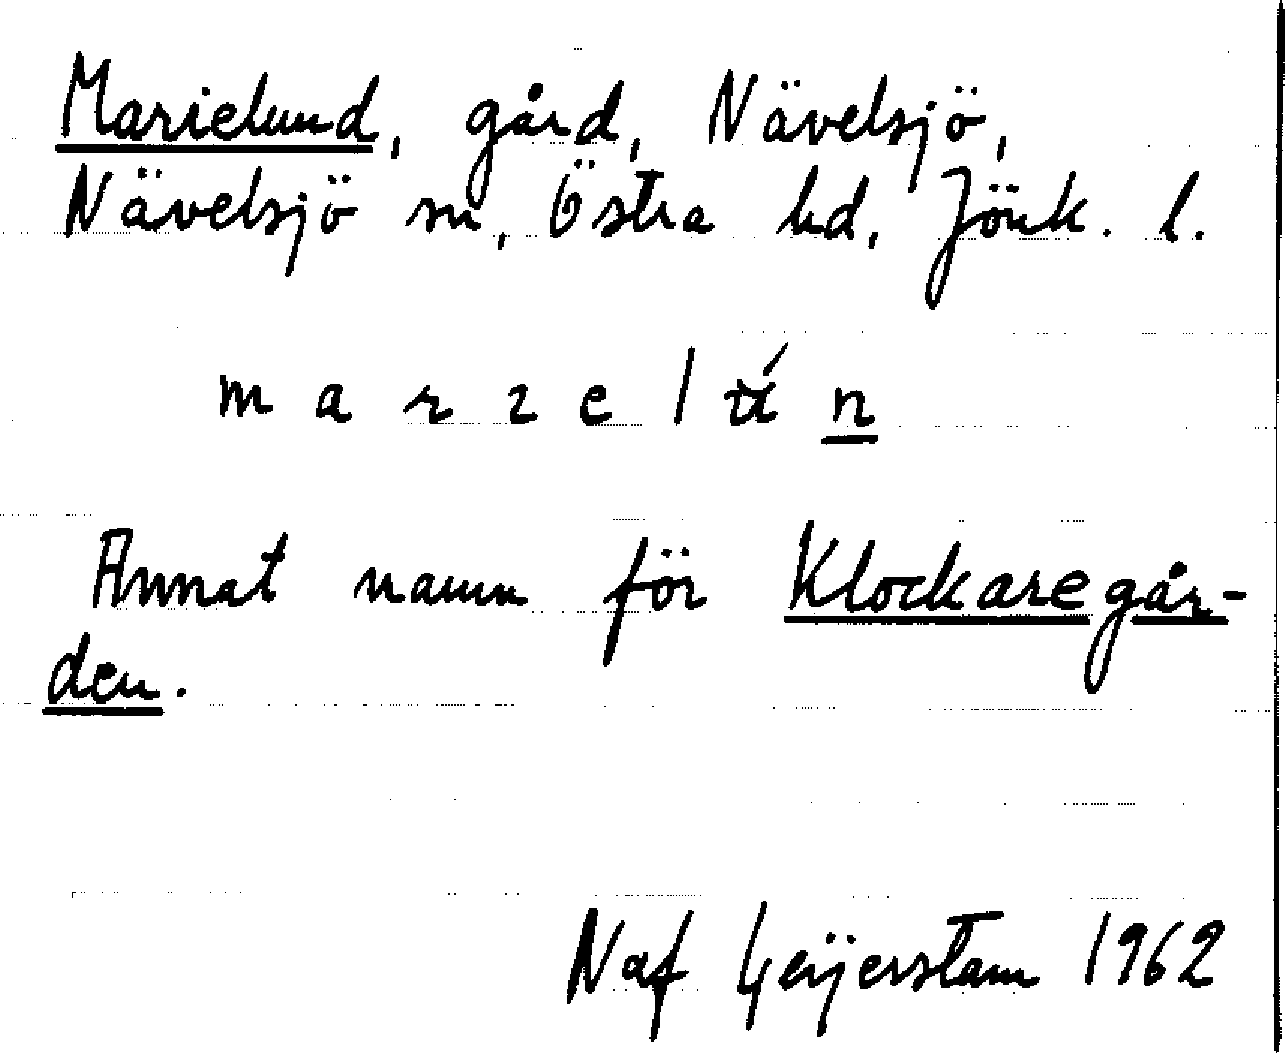 Marielund, gård, Nävelsjö,
Nävelsjö sn, Östra hd, Jönk. l.
Annat namn för Klockaregår-
den.
Naf Geijerstam 1962